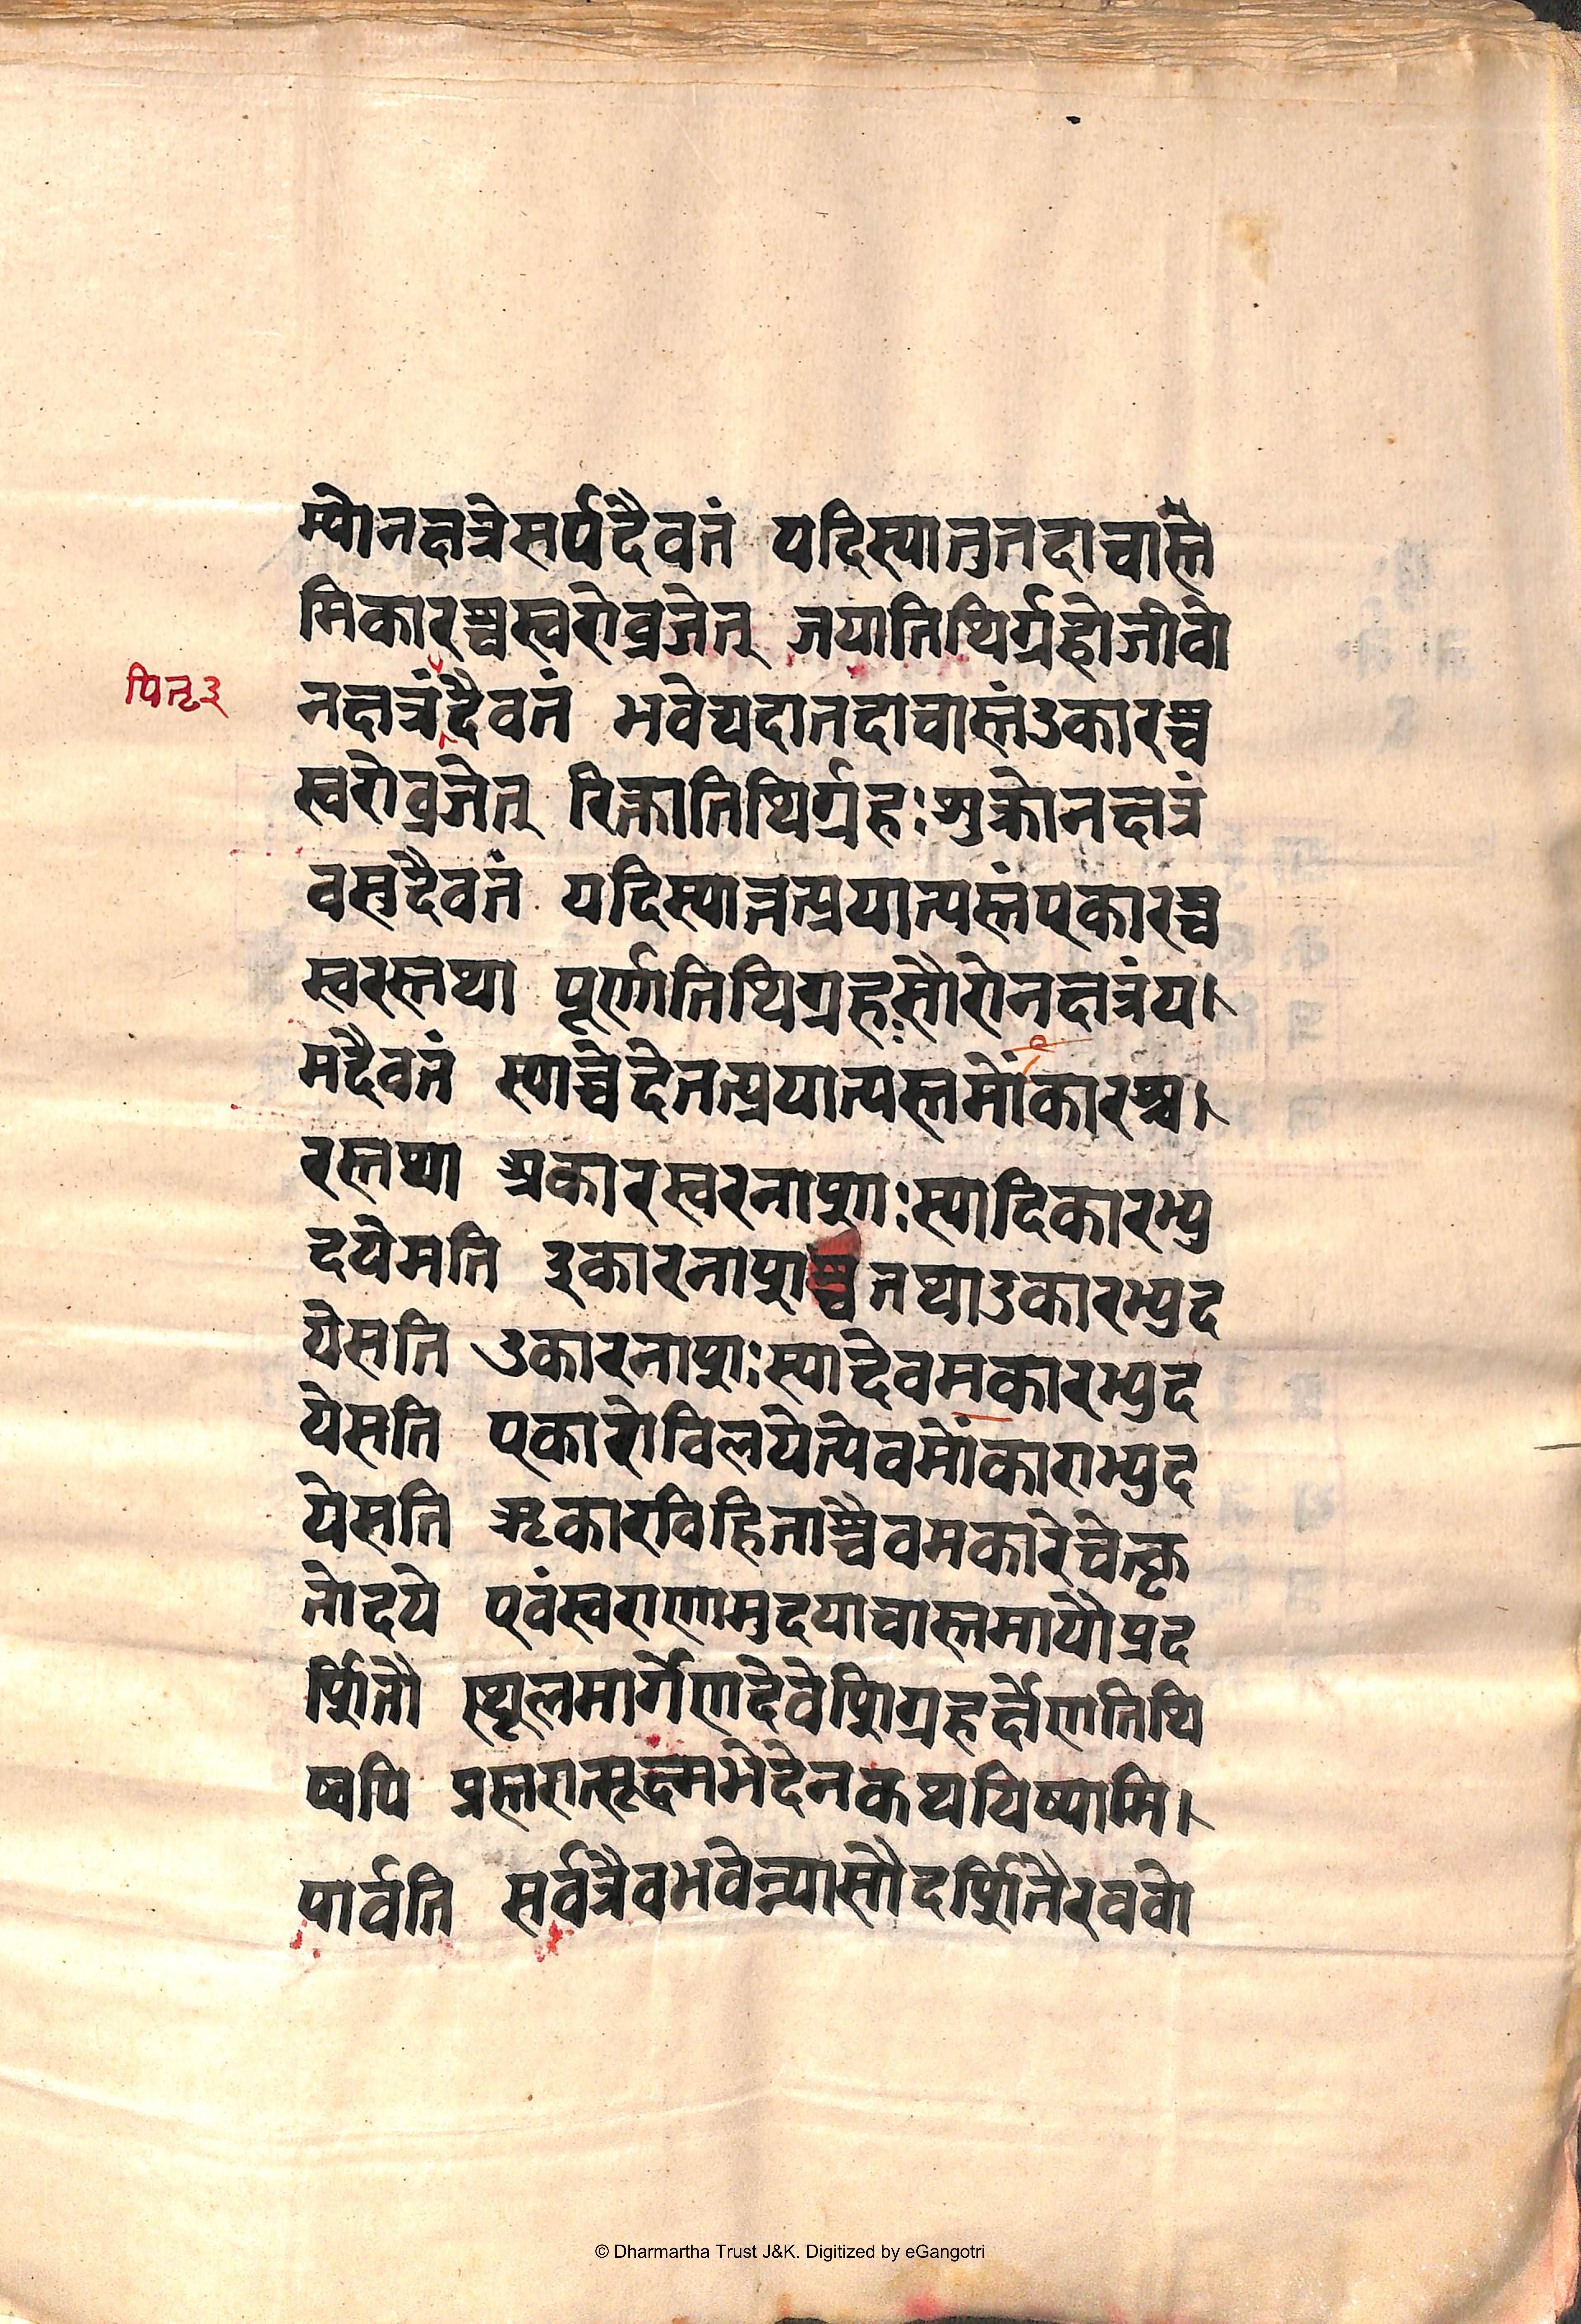 म्योनक्षत्रेसर्पदैवतं यदिस्यात्तुतदाचास्तै
मिकारश्चस्वरोव्रजेत् जयातिथिर्ग्रहोजीवो
पितृ३
नक्षत्रंदैवतं भवेद्यदातदाचास्तंउकारश्च
स्वरोव्रजेत् रिक्तातिथिर्ग्रहःशुक्रोनक्षत्रं
वसुदैवतं यदिस्यात्तत्प्रयात्यस्तंएकारश्च
स्वरस्तथा पूर्णातिथिग्रहःसौरोनक्षत्रंय।
मदैवतं स्याच्चेदेतत्प्रयात्यस्तमोंकारश्च।
रस्तथा अकारस्वरनाशः स्यादिकारभ्यु
दयेसति इकारनाशश्चतथाउकारभ्युद
येसति उकारनाशःस्यादेवमकारभ्युद
येसति एकारोविलयेत्येवमोंकाराभ्युद
येसति ऋकारविहिताश्चैवमकारेचेत्कृ
तोदये एवंस्वराणामुदयाचास्तमायौप्रद
र्शितौ स्थूलमार्गेणदेवेशिग्रहर्क्षेणतिथि
ष्वपि प्रस्तरात्सूक्ष्मभेदेनकथयिष्यामि।
पार्वति सर्वत्रैवभवेन्यासौदर्शितैरववो
© Dharmartha Trust J&K. Digitized by eGangotri